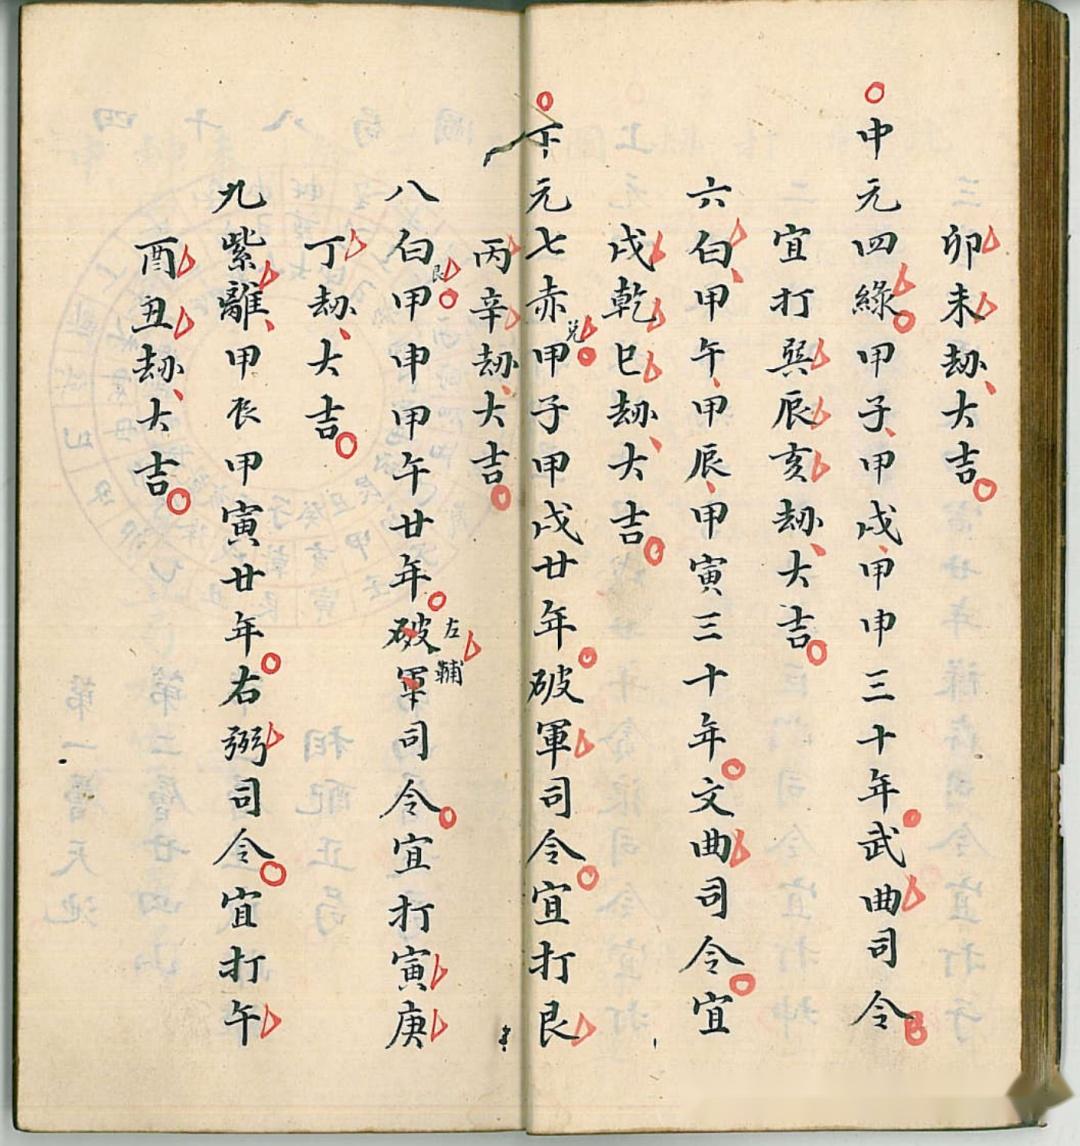 卯未劫大吉
中元四綠甲子甲戌甲申三十年武曲司令
宜打巽辰亥劫大吉
六白甲午甲辰甲寅三十年文曲司令宜
戌乾巳劫大吉
下元七赤兌甲子甲戌廿年破軍司令宜打艮
丙辛劫大吉
八白艮甲申甲午廿年破軍左輔司令宜打寅庚
丁劫大吉
九紫離甲辰甲寅廿年右弼司令宜打午
酉丑劫大吉